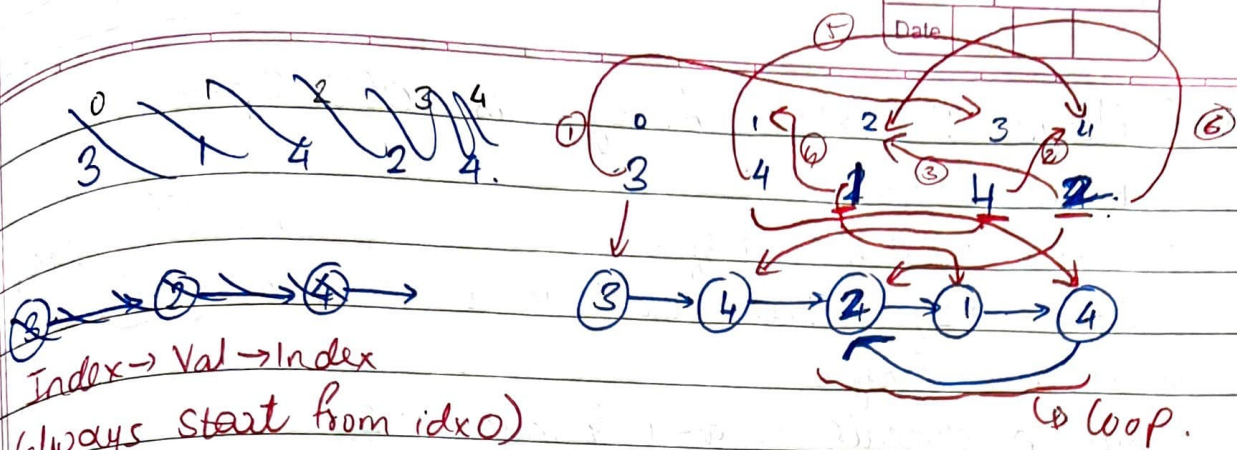 Date
⑤
0 1 2 3 4
3 1 4 2 4.
① 0 1 2 3 4 ⑥
3 4 1 4 2.
⑥ ③ ②
3 → 2 → 4 →
3 → 4 → 2 → 1 → 4
Index → Val → Index
(always start from idx 0)
↳ loop.